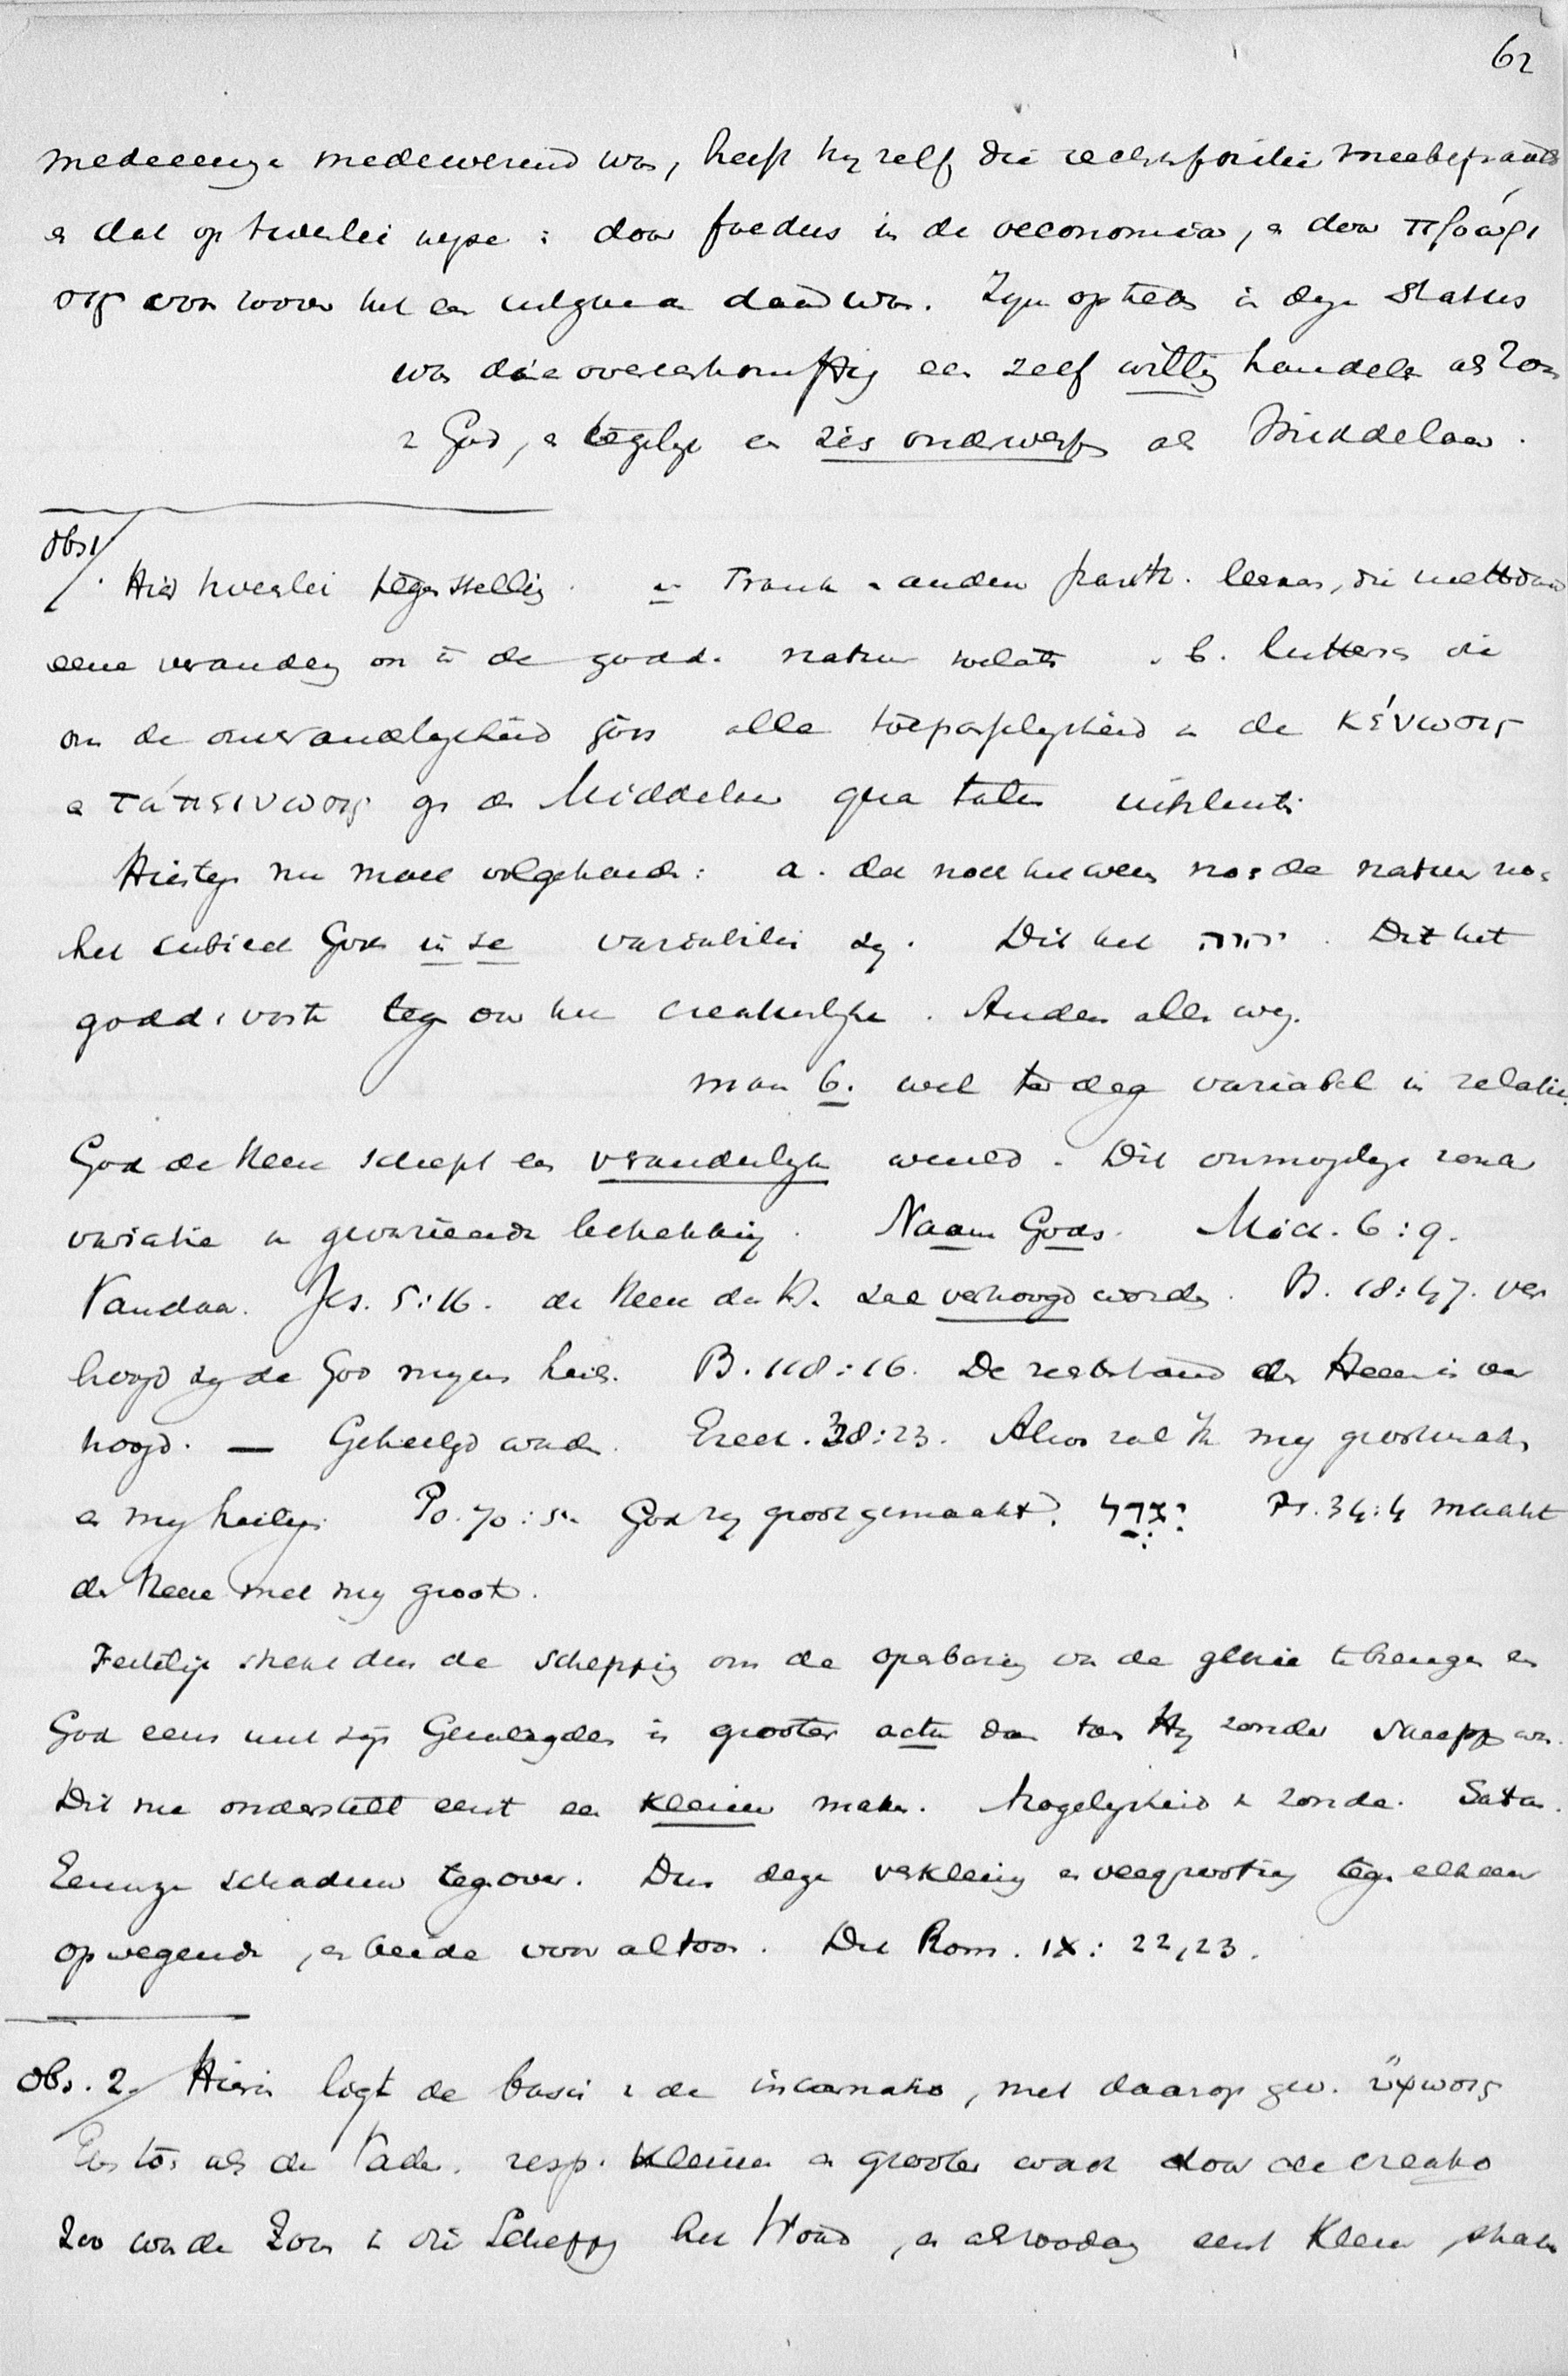 62
medeeeuwige medewerend was, heeft hy zelf die rechtspositie meebepaald
en dat op tweeërlei wyze : door foedus in de oeconomia, en door πρόωρι
σις voor zoover het een uitgaande daad was. Zyn optreden in dezen Status
was dienovereenkomstig een zelf willig handelen als Zoon
v God, en tegelyk een zich onderwerpen als Middelaar.
Obs 1/. Hier tweeërlei tegenstelling. a. Frank en andere panth. leeraars, die metterdaad
eene verandering in de godd. natuur toelaten. b. Luthersch die
om de onveranderlykheid Gods alle toepasselykheid v de κένωσις
en ταπείνωσις op de Middelaar qua talis uitsluiten
Hiertegen nu moet volgehouden : a. dat noch het wezen noch de natuur noch
het subject Gods in se variabilis zy. Dit het יהוה. Dit het
godd. vaste tegenover het creatuurlyke. Anders alles weg.
maar b. wel ter dege variabel in relatie.
God de Heere schept een veranderlyke wereld. Dit onmogelyk zonder
variatie en gevarieerde betrekking. Naam Gods. Mich. 6:9.
Vandaar. Jes. 5:16. de Heere der H. zal verhoogd worden. Ps. 18:47. ver
hoogd zy de God myns heils. Ps. 118:16. De rechterhand des Heeren is ver
hoogd. — Geheiligd worden. Ezech. 38:23. Alzoo zal Ik my grootmaken
en my heiligen Ps. 70:5. God zy grootgemaakt. יִגְדַּל Ps. 34:4 maakt
den Heere met my groot.
Feitelyk strekt dus de schepping om de openbaring van de glorie te brengen en
God eens met zyn Gezaligden is grooter actu dan toen Hy zonder schepping was.
Dit nu onderstelt eerst een kleiner maken. Mogelykheid v zonde. Satan.
Eeuwige schaduw tegenover. Dus deze verkleining en vergrooting tegen elkaar
opwegende, en beide voor altoos. Dit Rom. IX: 22,23.
Obs. 2./ Hierin ligt de basis v de incarnatio, met daarop gev. ὕψωσις
Evenals de Vader resp. kleiner en grooter werd door de creatio
Zoo werd de Zoon in die Schepping het Woord, en als zoodanig eerst Klein, straks